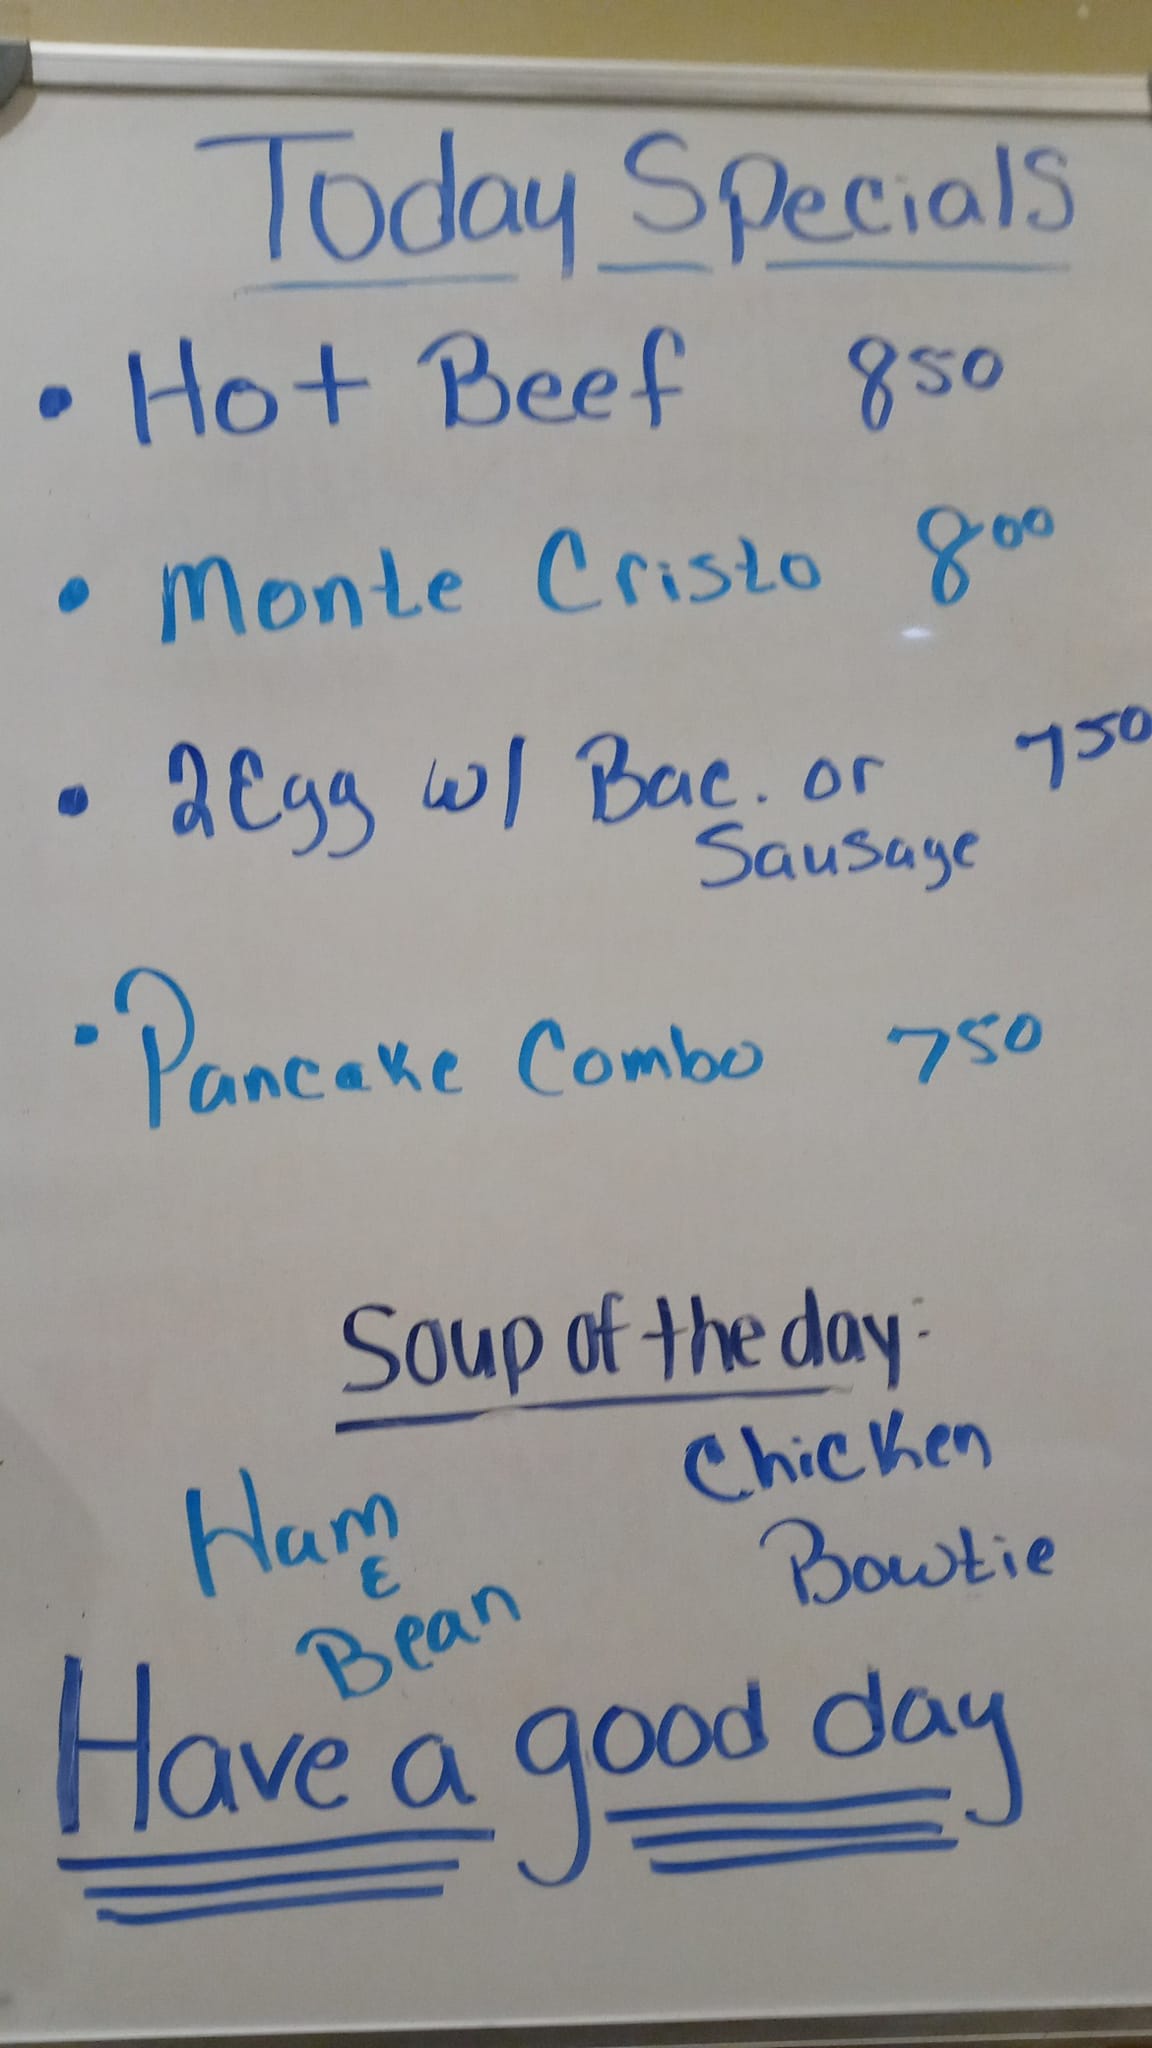 Today Specials
• Hot Beef 850
• Monte Cristo 800
• 2Egg w/ Bac. or 750
Sausage
• Pancake Combo 750
Soup of the day:
Ham
&
Bean
Chicken
Bowtie
Have a good day